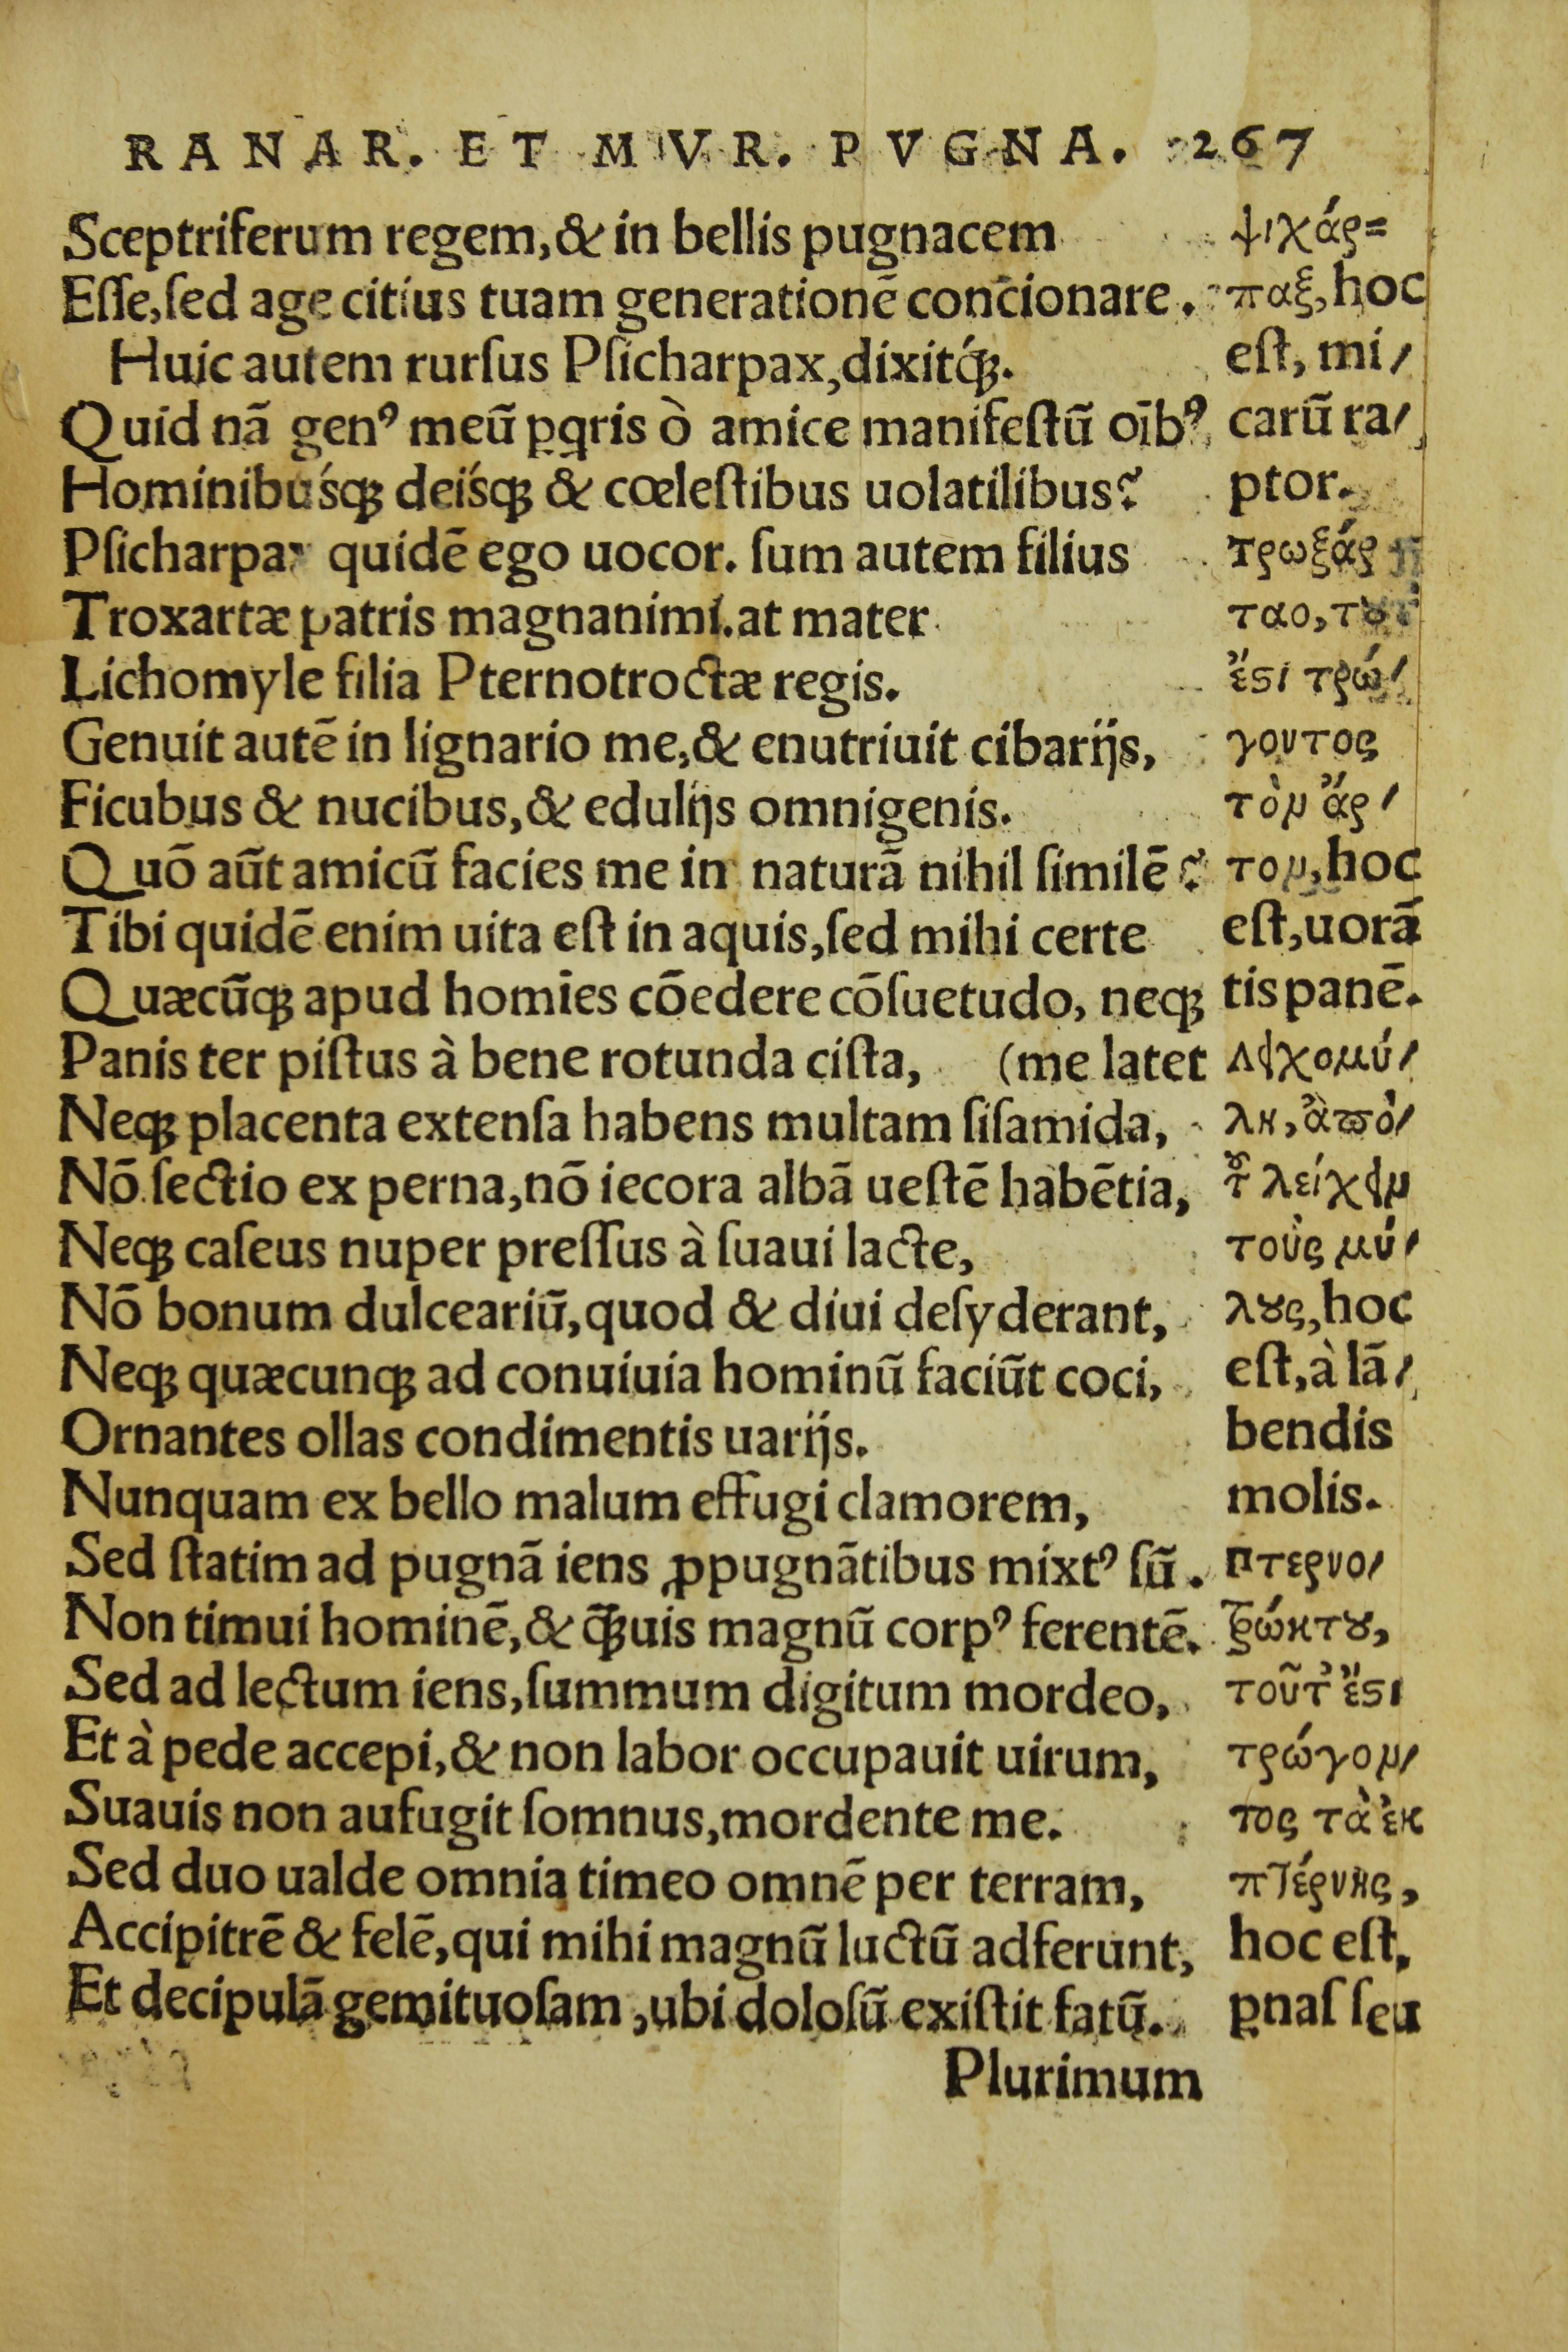 RANAR. ET MVR. PVGNA. 267
Sceptriferum regem,& in bellis pugnacem
Eſſe,ſed age citius tuam generationē concionare.
Huic autem rurſus Pſicharpax,dixitq́ꝫ.
Quid nā genꝰ meū ꝑꝗris ò amice manifeſtū oībꝰ,
Hominibuśqꝫ deiśqꝫ & cœleſtibus uolatilibus?
Pſicharpax quidē ego uocor. ſum autem filius
Troxartæ patris magnanimi.at mater
Lichomyle filia Pternotroctæ regis.
Genuit autē in lignario me,& enutriuit cibarijs,
Ficubus & nucibus,& edulijs omnigenis.
Quō aūt amicū facies me in naturā nihil ſimilē?
Tibi quidē enim uita eſt in aquis,ſed mihi certe
Quæcūqꝫ apud homīes cōedere cōſuetudo, neqꝫ
Panis ter piſtus à bene rotunda ciſta, (me latet
Neqꝫ placenta extenſa habens multam ſiſamida,
Nō ſectio ex perna,nō iecora albā ueſtē habētia,
Neqꝫ caſeus nuper preſſus à ſuaui lacte,
Nō bonum dulceariū,quod & diui deſyderant,
Neqꝫ quæcunqꝫ ad conuiuia hominū faciūt coci,
Ornantes ollas condimentis uarijs.
Nunquam ex bello malum effugi clamorem,
Sed ſtatim ad pugnā iens ꝓpugnātibus mixtꝰ ſū.
Non timui hominē,& q̄ꝫuis magnū corpꝰ ferentē.
Sed ad lectum iens,ſummum digitum mordeo,
Et à pede accepi,& non labor occupauit uirum,
Suauis non aufugit ſomnus,mordente me.
Sed duo ualde omnia timeo omnē per terram,
Accipitrē & felē,qui mihi magnū luctū adferunt,
Et decipulā gemituoſam,ubi doloſū exiſtit fatū.
Plurimum
ψιχάρ=
παξ,hoc
eſt, mi/
carū ra/
ptor.
τρωξάρ
ταο,τȣτ
ἔϛι τρώ/
γοντος
τὸν ἄρ/
τον,hoc
eſt,uorā
tis panē.
Λειχομύ/
λη,ἀπὸ/
τȣ͂ λείχειν
τοὺς μύ/
λȣς,hoc
eſt,à lā/
bendis
molis.
Πτερνο/
τρώκτȣ,
τοῦτ᾽ ἔϛι
τρώγον/
τος τὰ ἐκ
πτέρνης,
hoc eſt,
ꝑnaſ ſeu